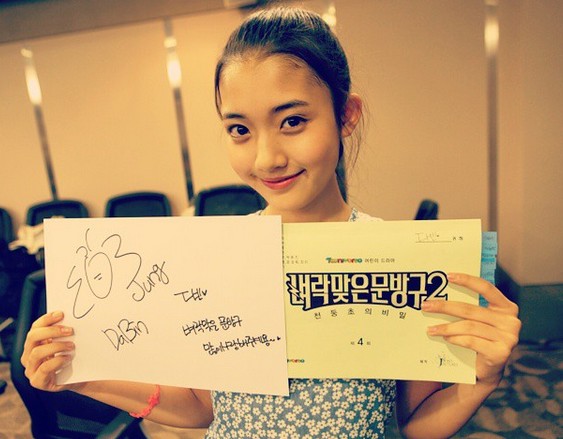 Jung
DaBin
다빈♥
벼락맞은 문방구
많이사랑해주세용~♥
Tooniverse 어린이 드라마
벼락맞은문방구2
천둥초의 비밀
제 4 회